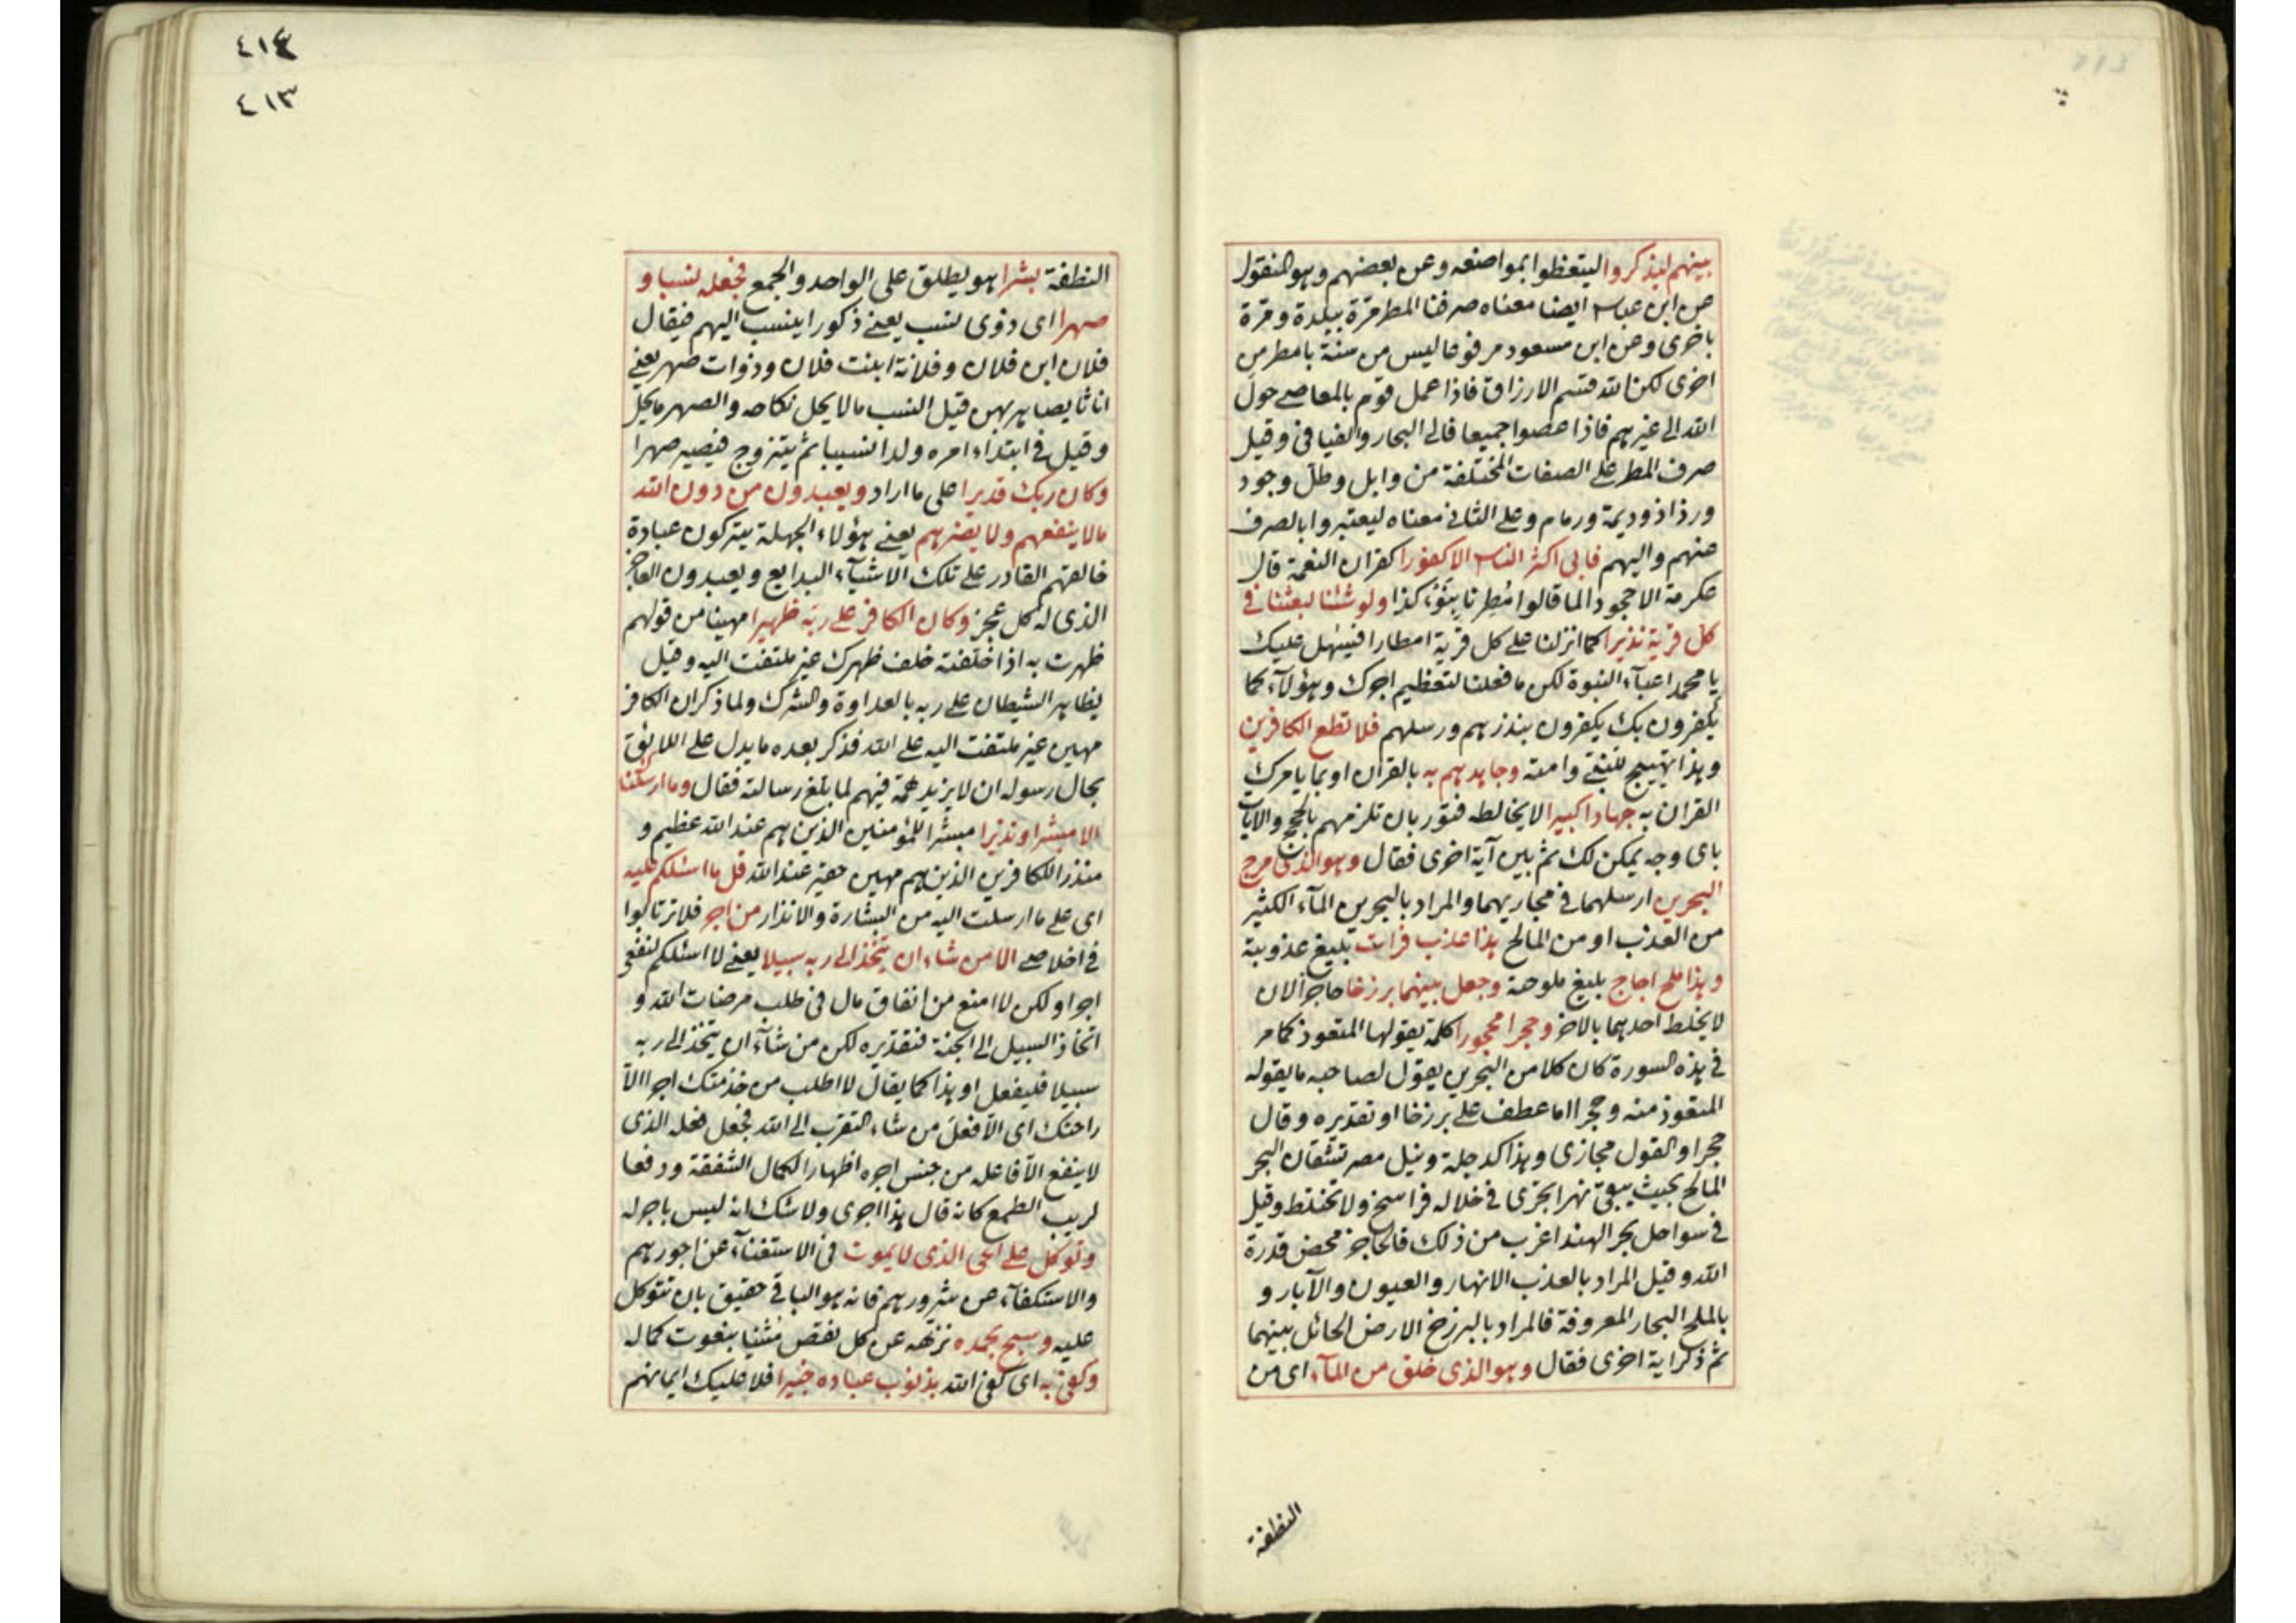 بينهم ليذكروا ليتعظوا بمواضعه وعن بعضهم وهو المنقول
عن ابن عباس ايضا معناه صرفنا المطر مرة ببلدة ومرة
باخرى وعن ابن مسعود مرفوعا ليس من سنة بامطر من
اخرى لكن الله قسم الارزاق فاذا عمل قوم بالمعاصي حول
الله الى غيرهم فاذا عصوا جميعا فالى البحار والفيافي وقيل
صرف المطر على الصفات المختلفة من وابل وطل وجود
ورذاذ وديمة ورهام وعلى الثاني معناه ليعتبروا بالصرف
عنهم واليهم فابى اكثر الناس الا كفورا كفران النعمة قال
عكرمة الا جحودا لما قالوا مُطِرنا بِنَوْء كذا ولو شئنا لبعثنا في
كل قرية نذيرا كما انزلنا على كل قرية امطارا فيسهل عليك
يا محمد اعبآء النبوة لكن ما فعلنا لتعظيم اجرك وهؤلآء كما
يكفرون بك يكفرون بنذرهم ورسلهم فلا تطع الكافرين
وهذا تهييج للنبي وامته وجاهدهم به بالقران او بما يامرك
القران به جهادا كبيرا لا يخالطه فتور بان تلزمهم بالحجج والايات
باى وجه يمكن لك ثم بين آية اخرى فقال وهو الذى مرج
البحرين ارسلهما في مجاريهما والمراد بالبحرين المآء الكثير
من العذب او من المالح هذا عذب فرات بليغ عذوبته
وهذا ملح اجاج بليغ ملوحته وجعل بينهما برزخا حاجزا لان
لا يختلط احدهما بالاخر وحجرا محجورا كلمة يقولها المتعوذ كما مر
في هذه السورة كان كلا من البحرين يقول لصاحبه ما يقوله
المتعوذ منه وحجرا اما عطف على برزخا او تقديره وقال
حجرا والقول مجازى وهذا كدجلة ونيل مصر تشقان البحر
المالح بحيث يبقى نهرا يجرى في خلاله فراسخ ولا تختلط وقيل
في سواحل بحر الهند اغرب من ذلك فالحاجز محض قدرة
الله وقيل المراد بالعذب الانهار والعيون والآبار و
بالملح البحار المعروفة فالمراد بالبرزخ الارض الحائل بينهما
ثم ذكر اية اخرى فقال وهو الذى خلق من المآء اى من
النطفة
٤١٣
النطفة بشرا هو يطلق على الواحد والجمع فجعله نسبا و
صهرا اى ذوى نسب يعني ذكورا ينسب اليهم فيقال
فلان ابن فلان وفلانة ابنت فلان وذوات صهر يعني
اناثا يصاهر بهن قيل النسب مالا يحل نكاحه والصهر ما يحل
وقيل في ابتداء امره ولدا نسيبا ثم يتزوج فيصير صهرا
وكان ربك قديرا على ما اراد ويعبدون من دون الله
مالا ينفعهم ولا يضرهم يعني هؤلاء الجهلة يتركون عبادة
خالقهم القادر على تلك الاشيآء البدايع ويعبدون العاجز
الذى له كل عجز وكان الكافر على ربه ظهيرا مهينا من قولهم
ظهرت به اذا خلفته خلف ظهرك غير ملتفت اليه وقيل
يظاهر الشيطان على ربه بالعداوة والشرك ولما ذكر ان الكافر
مهين غير ملتفت اليه على الله فذكر بعده ما يدل على اللائق
بحال رسوله ان لا يزيد همه فيهم لما بلغ رسالته فقال وما ارسلنا
الا مبشرا ونذيرا مبشرا للمؤمنين الذين هم عند الله عظيم و
منذرا للكافرين الذين هم مهين حقير عند الله قل ما اسئلكم عليه
اى على ما ارسلت اليه من البشارة والانذار من اجر فلا ترتابوا
في اخلاصي الا من شاء ان يتخذ الى ربه سبيلا يعني لا اسئلكم لنفعي
اجرا ولكن لا امنع من انفاق مال في طلب مرضات الله و
اتخاذ السبيل الى الجنة فتقديره لكن من شآء ان يتخذ الى ربه
سبيلا فليفعل او هذا كما يقال لا اطلب من خدمتك اجرا الا
راحتك اى الا فعل من شاء التقرب الى الله فجعل فعله الذى
لا ينفع الا فاعله من جنس اجره اظهارا لكمال الشفقة ودفعا
لريب الطمع كانه قال هذا اجرى ولا شك انه ليس باجر له
وتوكل على الحى الذى لا يموت في الاستغنآء عن اجورهم
والاستكفآء عن شرورهم فانه هو الباقي حقيق بان تتوكل
عليه وسبح بحمده نزهه عن كل نقص مُثنيا بنعوت كماله
وكفى به اى كفى الله بذنوب عباده خبيرا فلا عليك ايمانهم